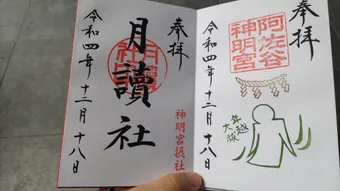 奉拝
阿佐谷
神明宮
令和四年十二月十八日
年越
大祓
奉拝
月讀社
神明宮摂社
令和四年十二月十八日